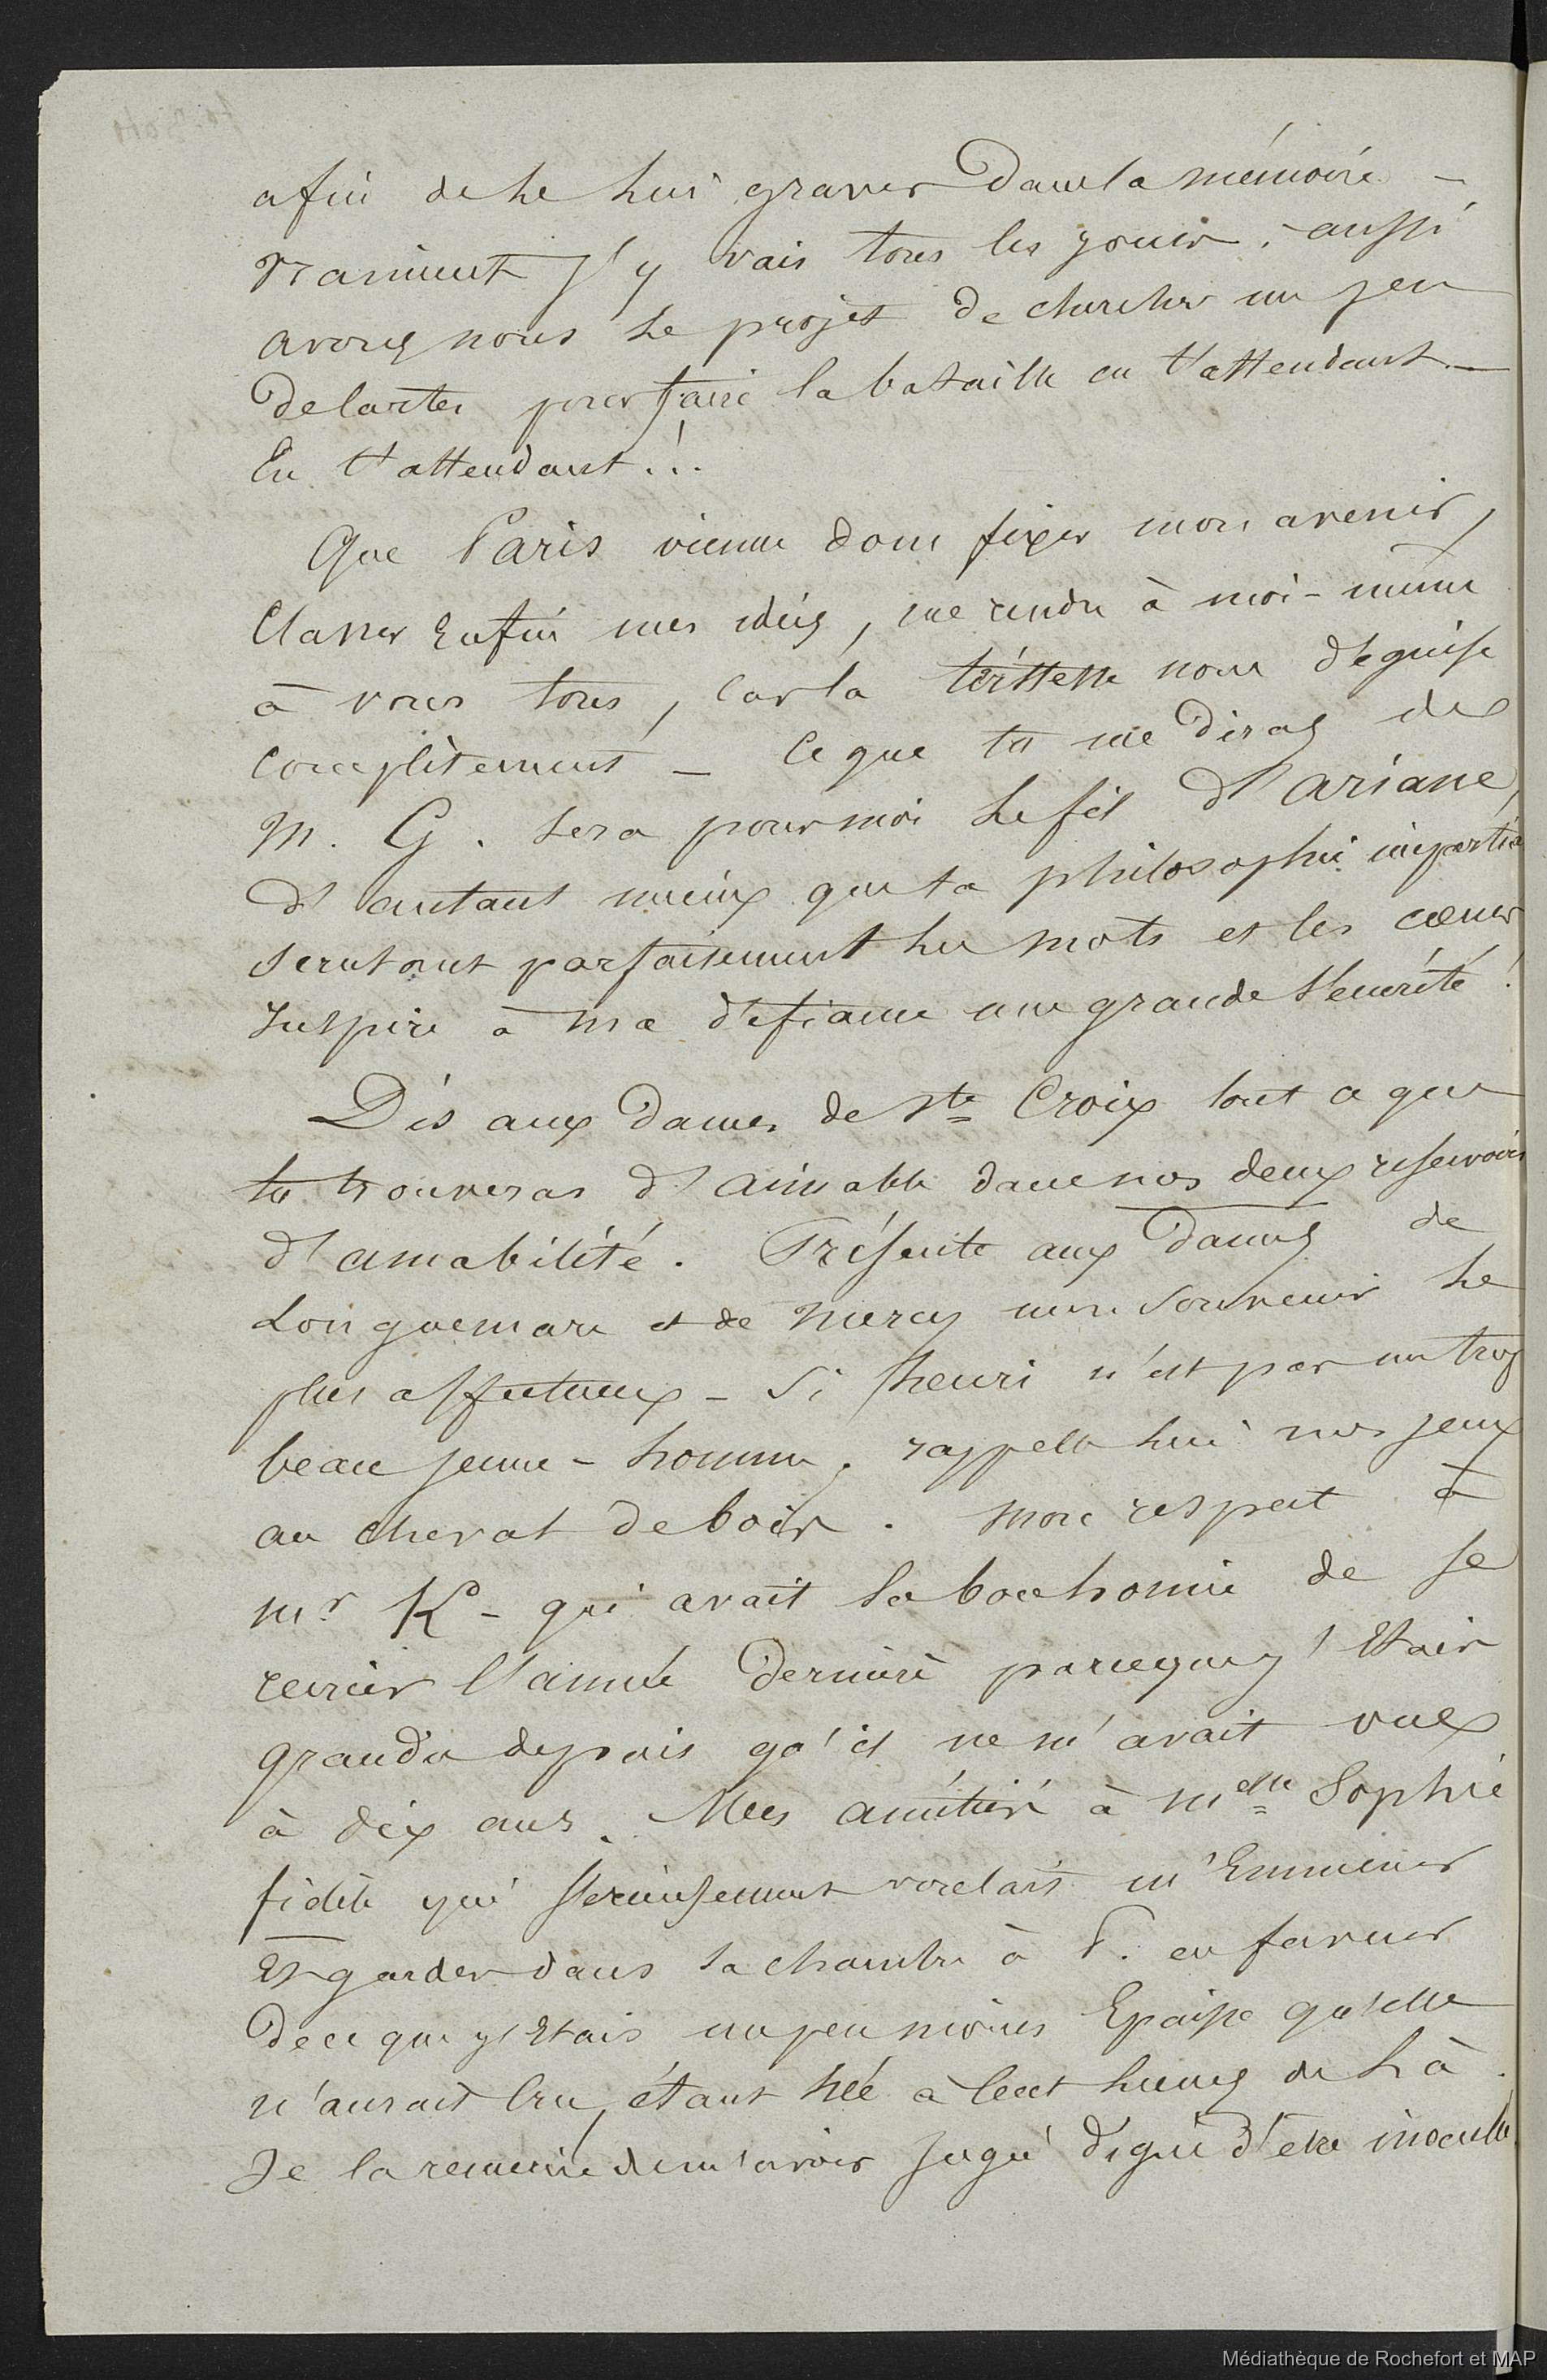 afin de le lui graver dans la mémoire -
vraiment j'y vais tous les jours ; aussi
avons nous le projet de chercher un peu
de cartes pour faire la bataille en t'attendant -
En t'attendant !..
Que Paris vienne donc fixer mon avenir,
classer enfin mes idées, me rendre à moi-même
à vous tous, car la tristesse nous déguise
complètement - Ce que tu me diras de
M. G. sera pour moi le fil d'ariane,
d'autant mieux que ta philosophie impartia
scrutant parfaitement les mots et les cœurs
Inspire à ma défiance une grande sécurité !
Dis aux Dames de Ste Croix tout ce que
tu trouveras d'aimable dans nos deux reservoirs
d'amabilité. Présente aux Dames de
Longuemare et de Mercy mon souvenir le
plus affectueux - Si henri n'est pas un trop
beau jeune-homme, rappelle lui nos jeux
au cheval de bois. Mon respect à
mr K - qui avait la bonhomie de se
l'année dernière parceque j'étais
grandie depuis qu'il ne m'avait vue
à dix ans. Mes amitiés à melle Sophie
fidèle qui sérieusement voulait m'Emmener
Et garder dans sa chambre à P. en faveur
de ce que j'Etais un peu moins Epaisse qu'elle
n'aurait cru, étant née à cent lieues de là.
Je la remercie de m'avoir jugée digne d'etre
Médiathèque de Rochefort et MAP